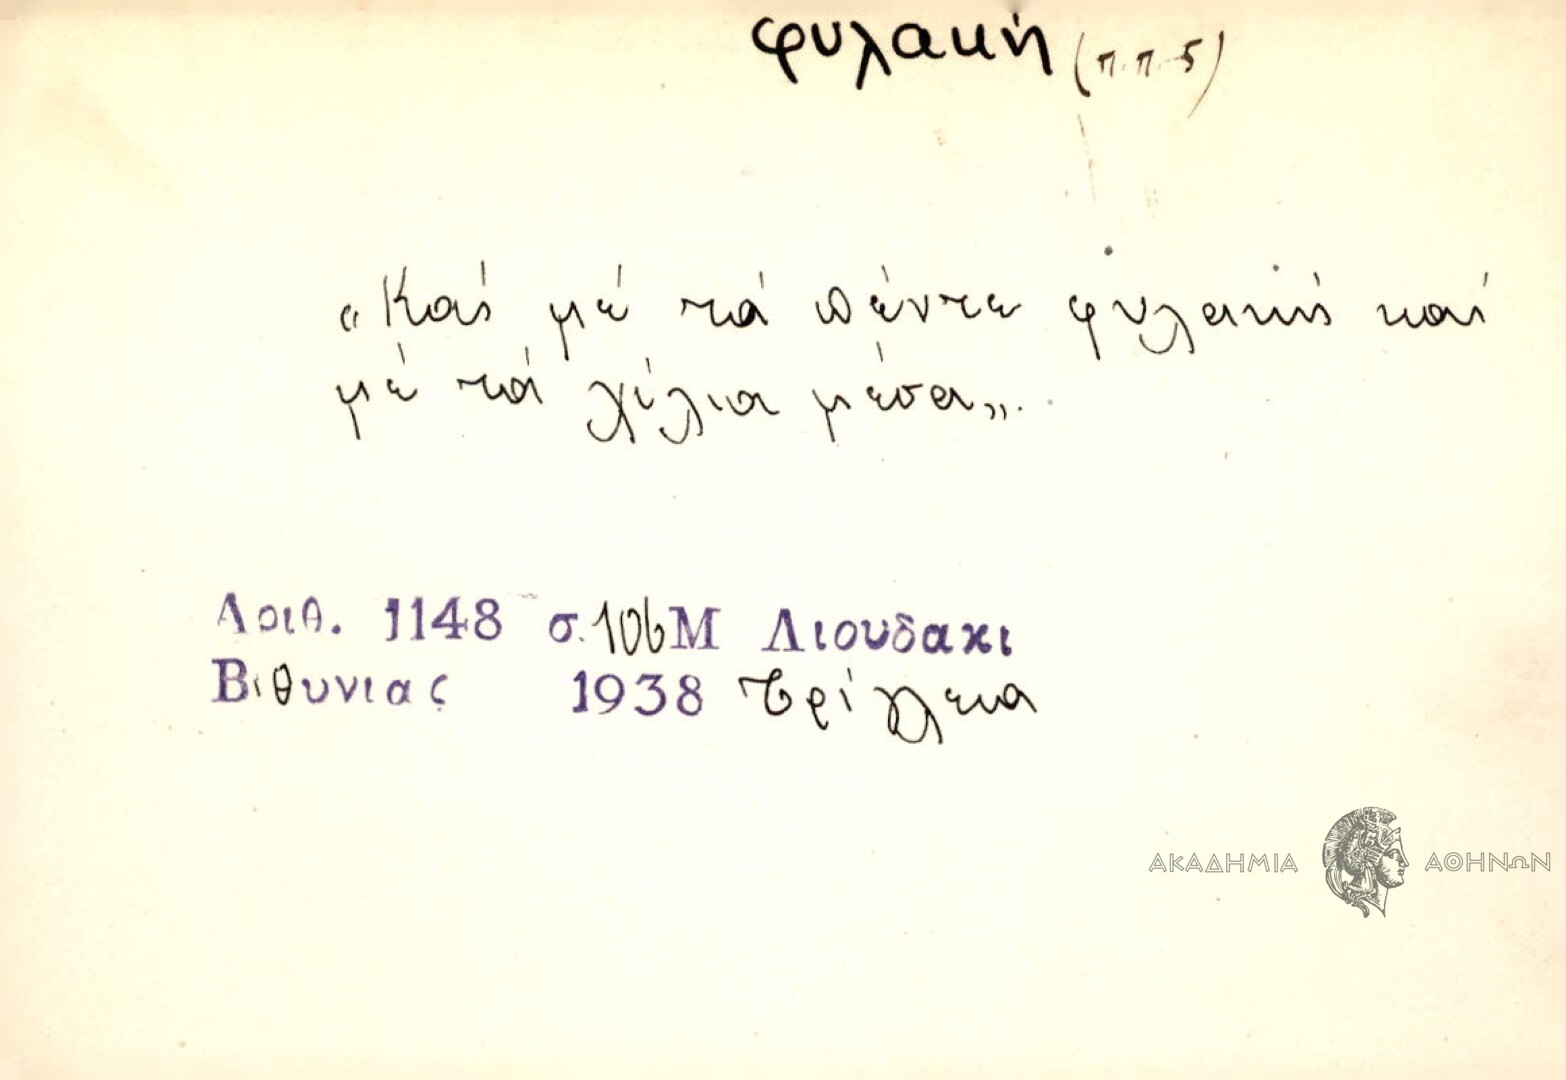 φυλακή (π.π. 5)
«Καί μέ τά πέντε φυλακή καί
μέ τά χίλια μέσα».
Αριθ. 1148 σ. 106 Μ Λιουδακι
Βιθυνιας 1938 Τρίγλεια
ΑΚΑΔΗΜΙΑ ΑΘΗΝΩΝ